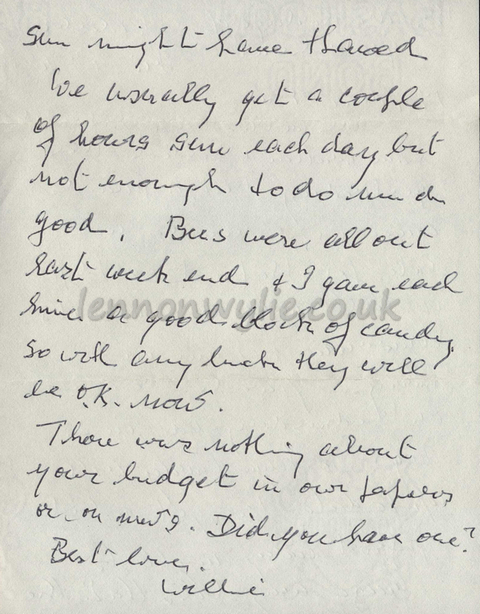 sun might have thawed
We usually get a couple
of hours sun each day but
not enough to do much
good. Bees were all out
last week end & I gave each
hive a good block of candy,
so with any luck they will
be O.K. now.
There was nothing about
your budget in our papers
or on news. Did you have one?
Best love.
Willie
lennonwylie.co.uk